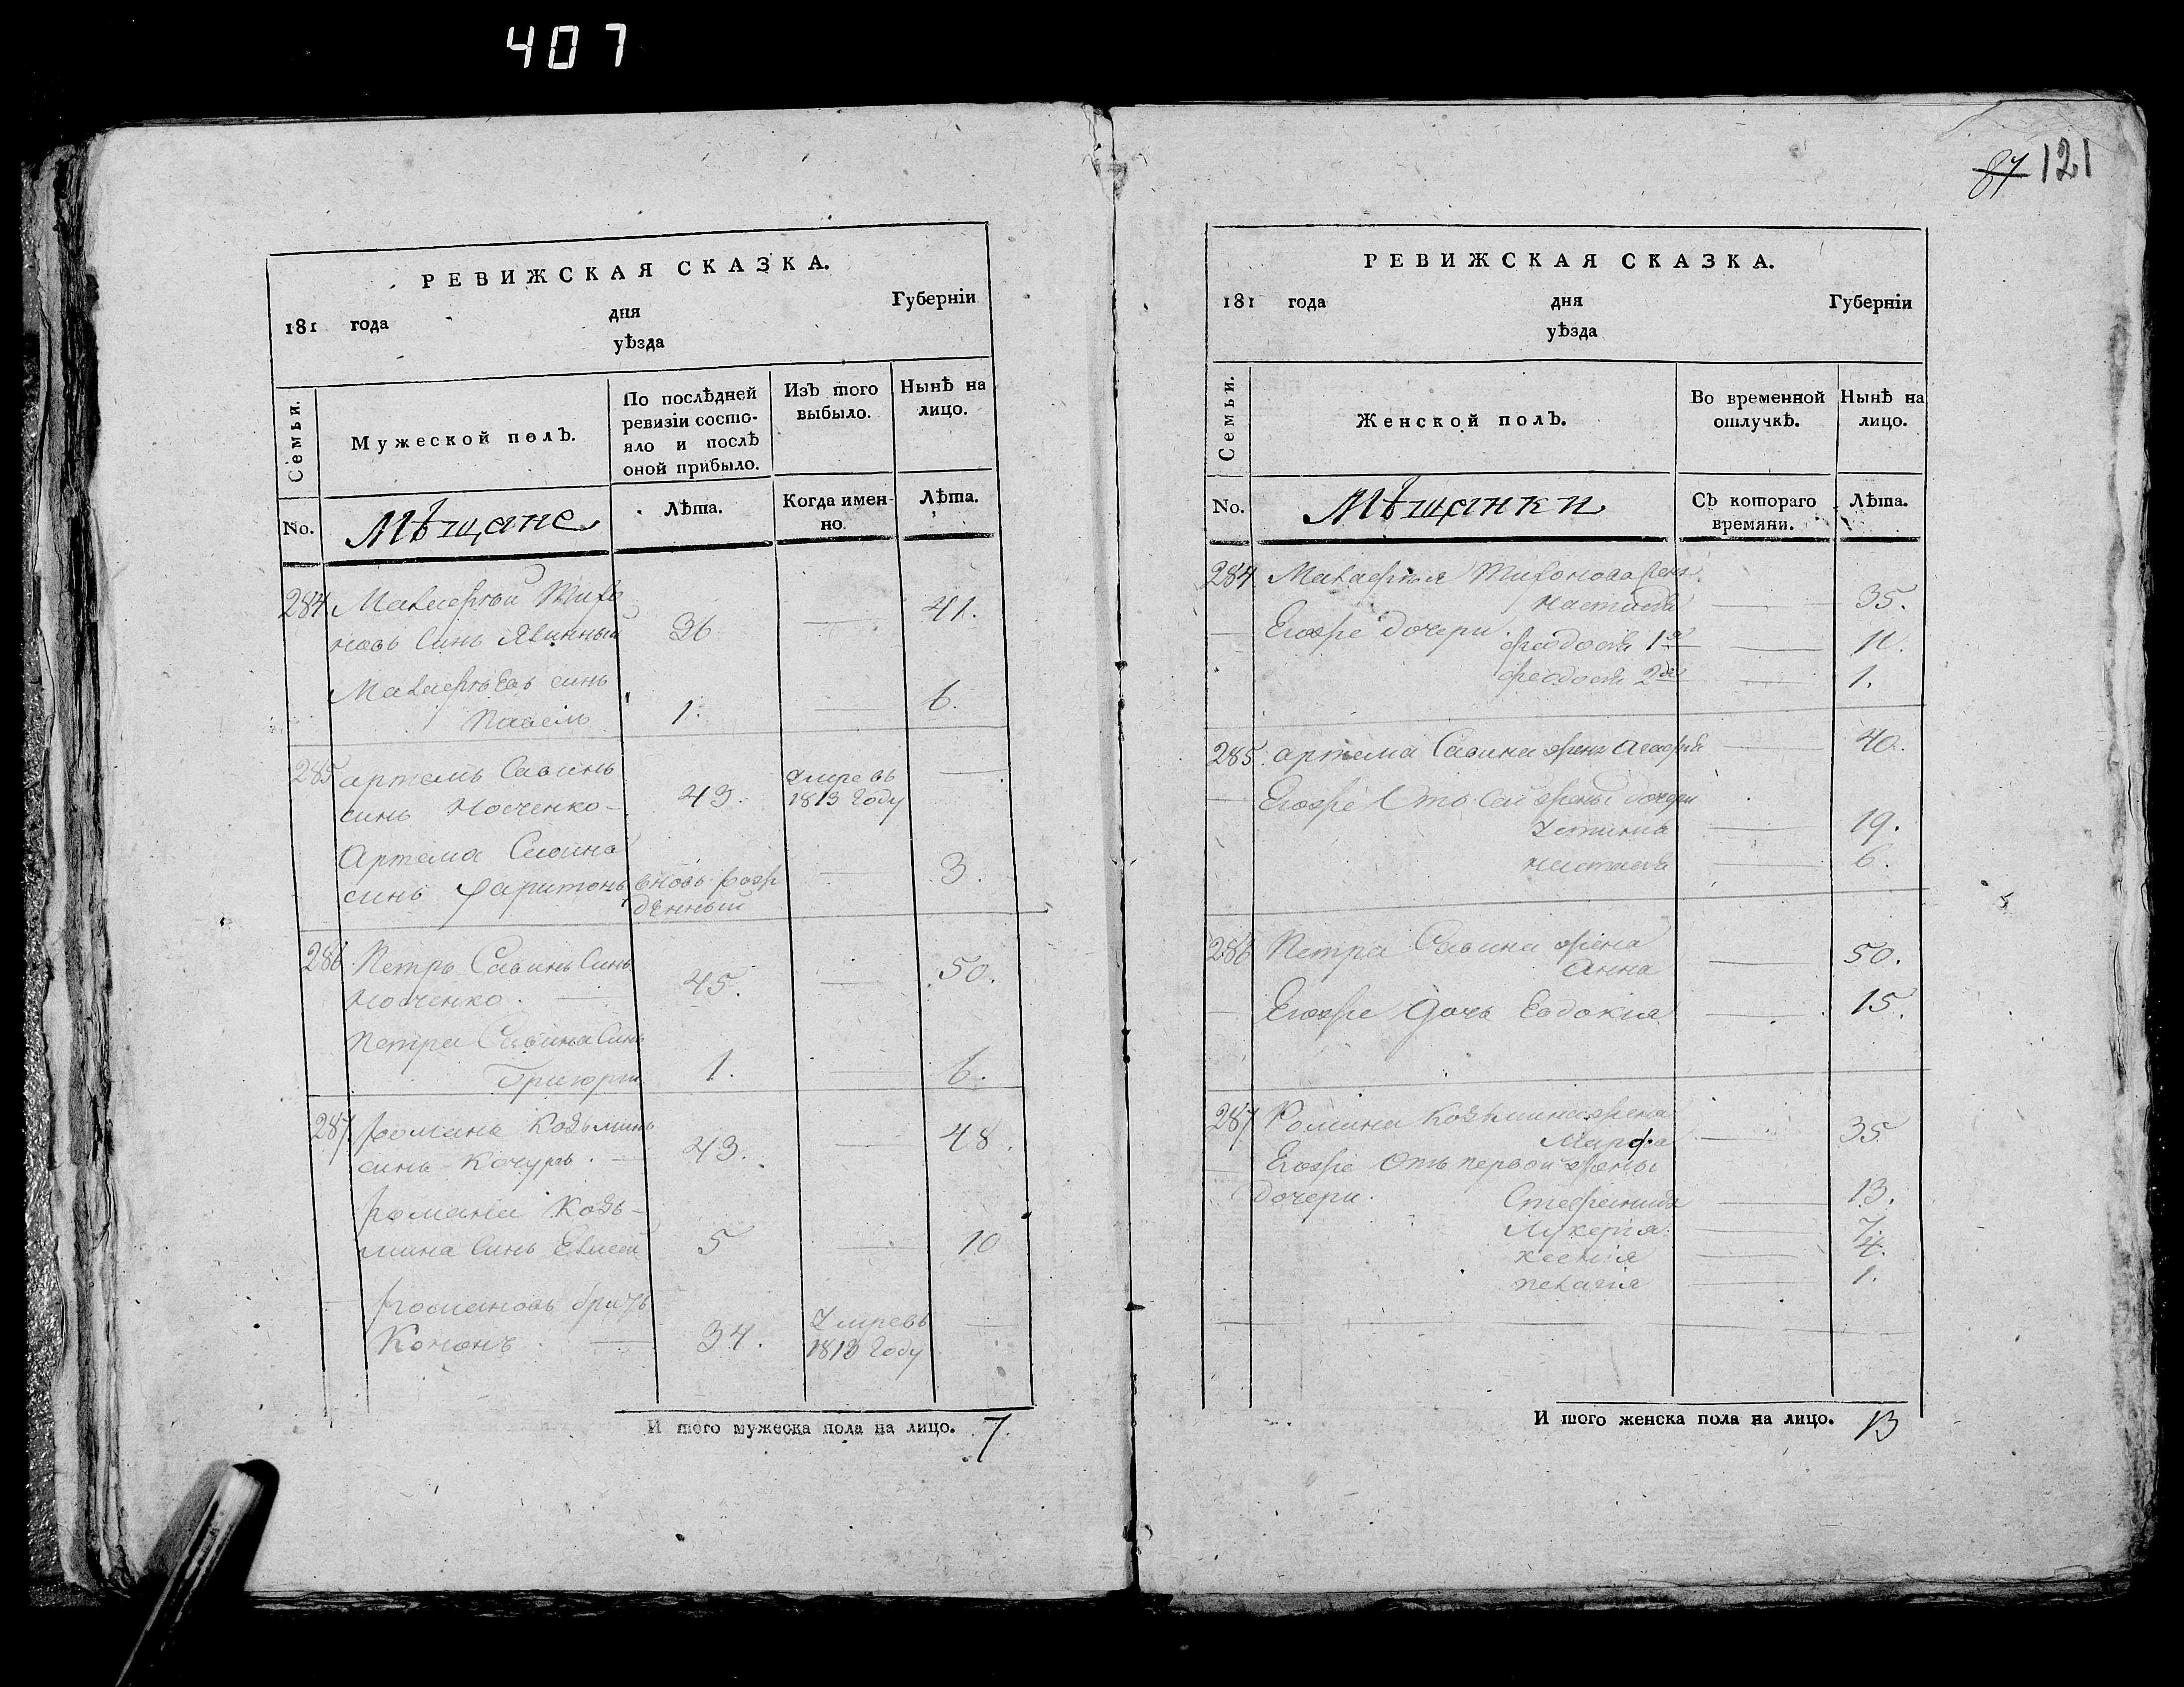 407
87 121
РЕВИЖСКАЯ СКАЗКА.
181 года дня Губерніи
уѣзда
Семьи.
Мужеской полъ.
По послѣдней
ревизіи состо-
яло и послѣ
оной прибыло.
Изъ того
выбыло.
Нынѣ на
лицо.
No.
Мѣщане
Лѣта.
Когда имен-
но.
Лѣта.
284 Макарѳтѣй
новъ Синъ 36 — 41.
синъ
Павелъ 1. — 6.
285 артемъ Савинъ умре въ —
синъ Носченко — 43. 1813 Году
Артема Савина
синъ Харитонъ вновь рож — 3.
денный
286 Петръ Савинъ Синъ
Носченко. — 45. — 50.
Петра Савина Синъ
Григорій 1. — 6.
287 Романъ Козьминъ
синъ Кочуръ. — 43. — 48.
Романа Козь-
мина Синъ Елисей 5 — 10
Романовъ братъ Умре въ —
Кононъ — 34. 1813 Году
И того мужеска пола на лицо. 7.
РЕВИЖСКАЯ СКАЗКА.
181 года дня Губерніи
уѣзда
Семьи.
Женской полъ.
Во временной
отлучкѣ.
Нынѣ на
лицо.
No.
Мѣщанки
Съ котораго
времяни.
Лѣта.
284 Тихонова жена
Настасія — 35.
— Егоже дочери. Феодосія 1я — 11.
Феодосія 2я — 1.
285. артема Савина жена Агафія — 40.
— Егоже Отъ сей жены дочери
Устинія — 19.
Настасія — 6.
286 Петра Савина жена
Анна — 50.
— Егоже дочь Евдокия — 15.
287 Романа Козьмина жена
Марфа — 35
— Егоже Отъ первой жены
дочери. Стефанида — 13.
Лукерія — 7.
Ксенія — 4.
Пелагія — 1.
И того женска пола на лицо. 13